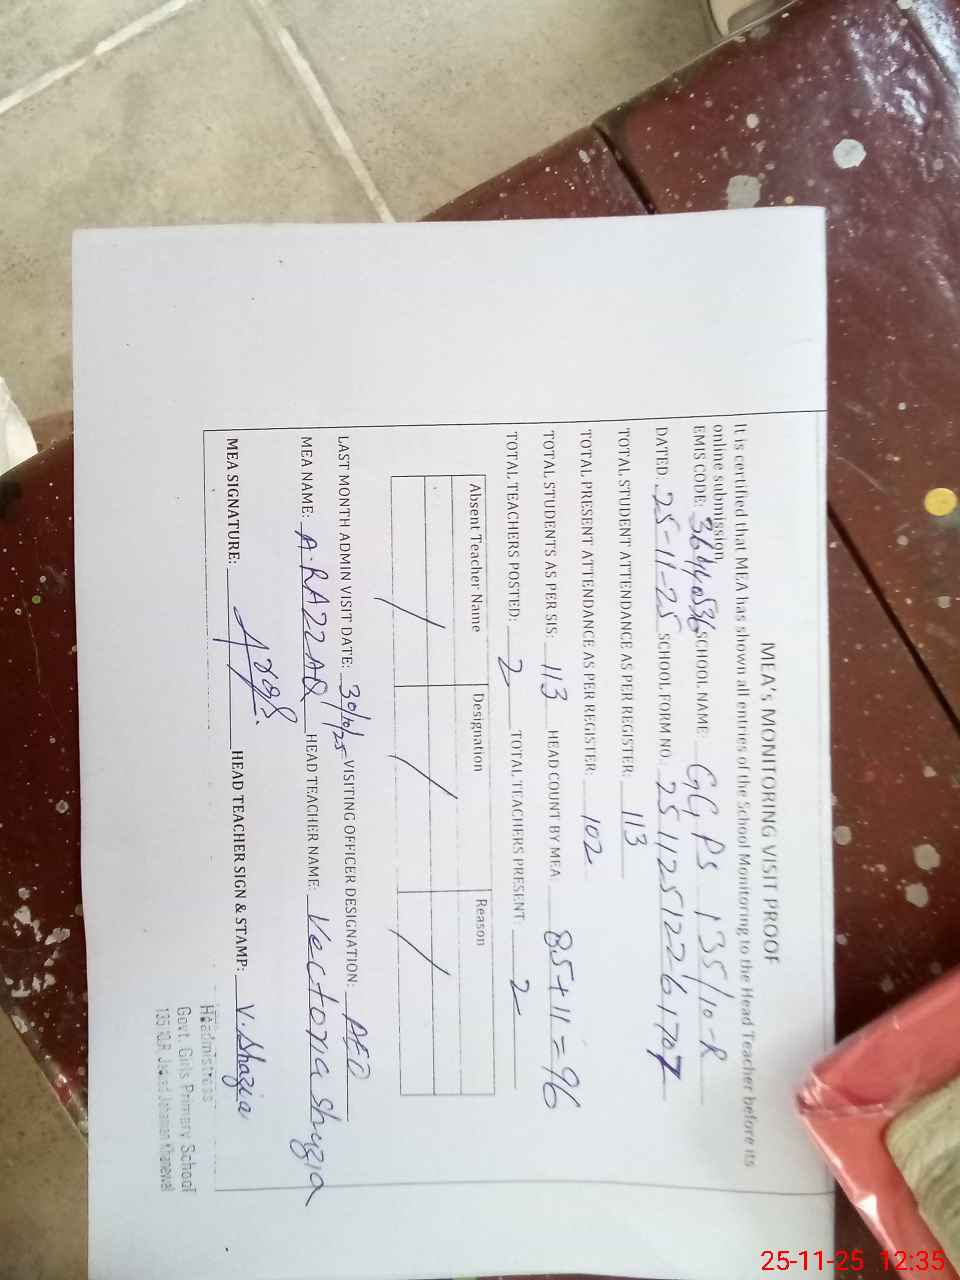 MEA's MONITORING VISIT PROOF
It is certified that MEA has shown all entries of the School Monitoring to the Head Teacher before its
online submission.
EMIS CODE: 36440536 SCHOOL NAME: GGPS 135/10-R
DATED 25-11-25 SCHOOL FORM NO. 25112512261707
TOTAL STUDENT ATTENDANCE AS PER REGISTER: 113
TOTAL PRESENT ATTENDANCE AS PER REGISTER: 102
TOTAL STUDENTS AS PER SIS: 113 HEAD COUNT BY MEA 85+11=96
TOTAL TEACHERS POSTED: 2 TOTAL TEACHERS PRESENT: 2
Absent Teacher Name Designation Reason
/ / /
LAST MONTH ADMIN VISIT DATE: 30/10/25 VISITING OFFICER DESIGNATION: AEO
MEA NAME: A.RAZZAQ HEAD TEACHER NAME: Vectoria Shazia
MEA SIGNATURE: HEAD TEACHER SIGN & STAMP: V. Shazia
Headmistress
Govt. Girls Primary School
135/10.R Jahanian Khanewal
25-11-25 12:35